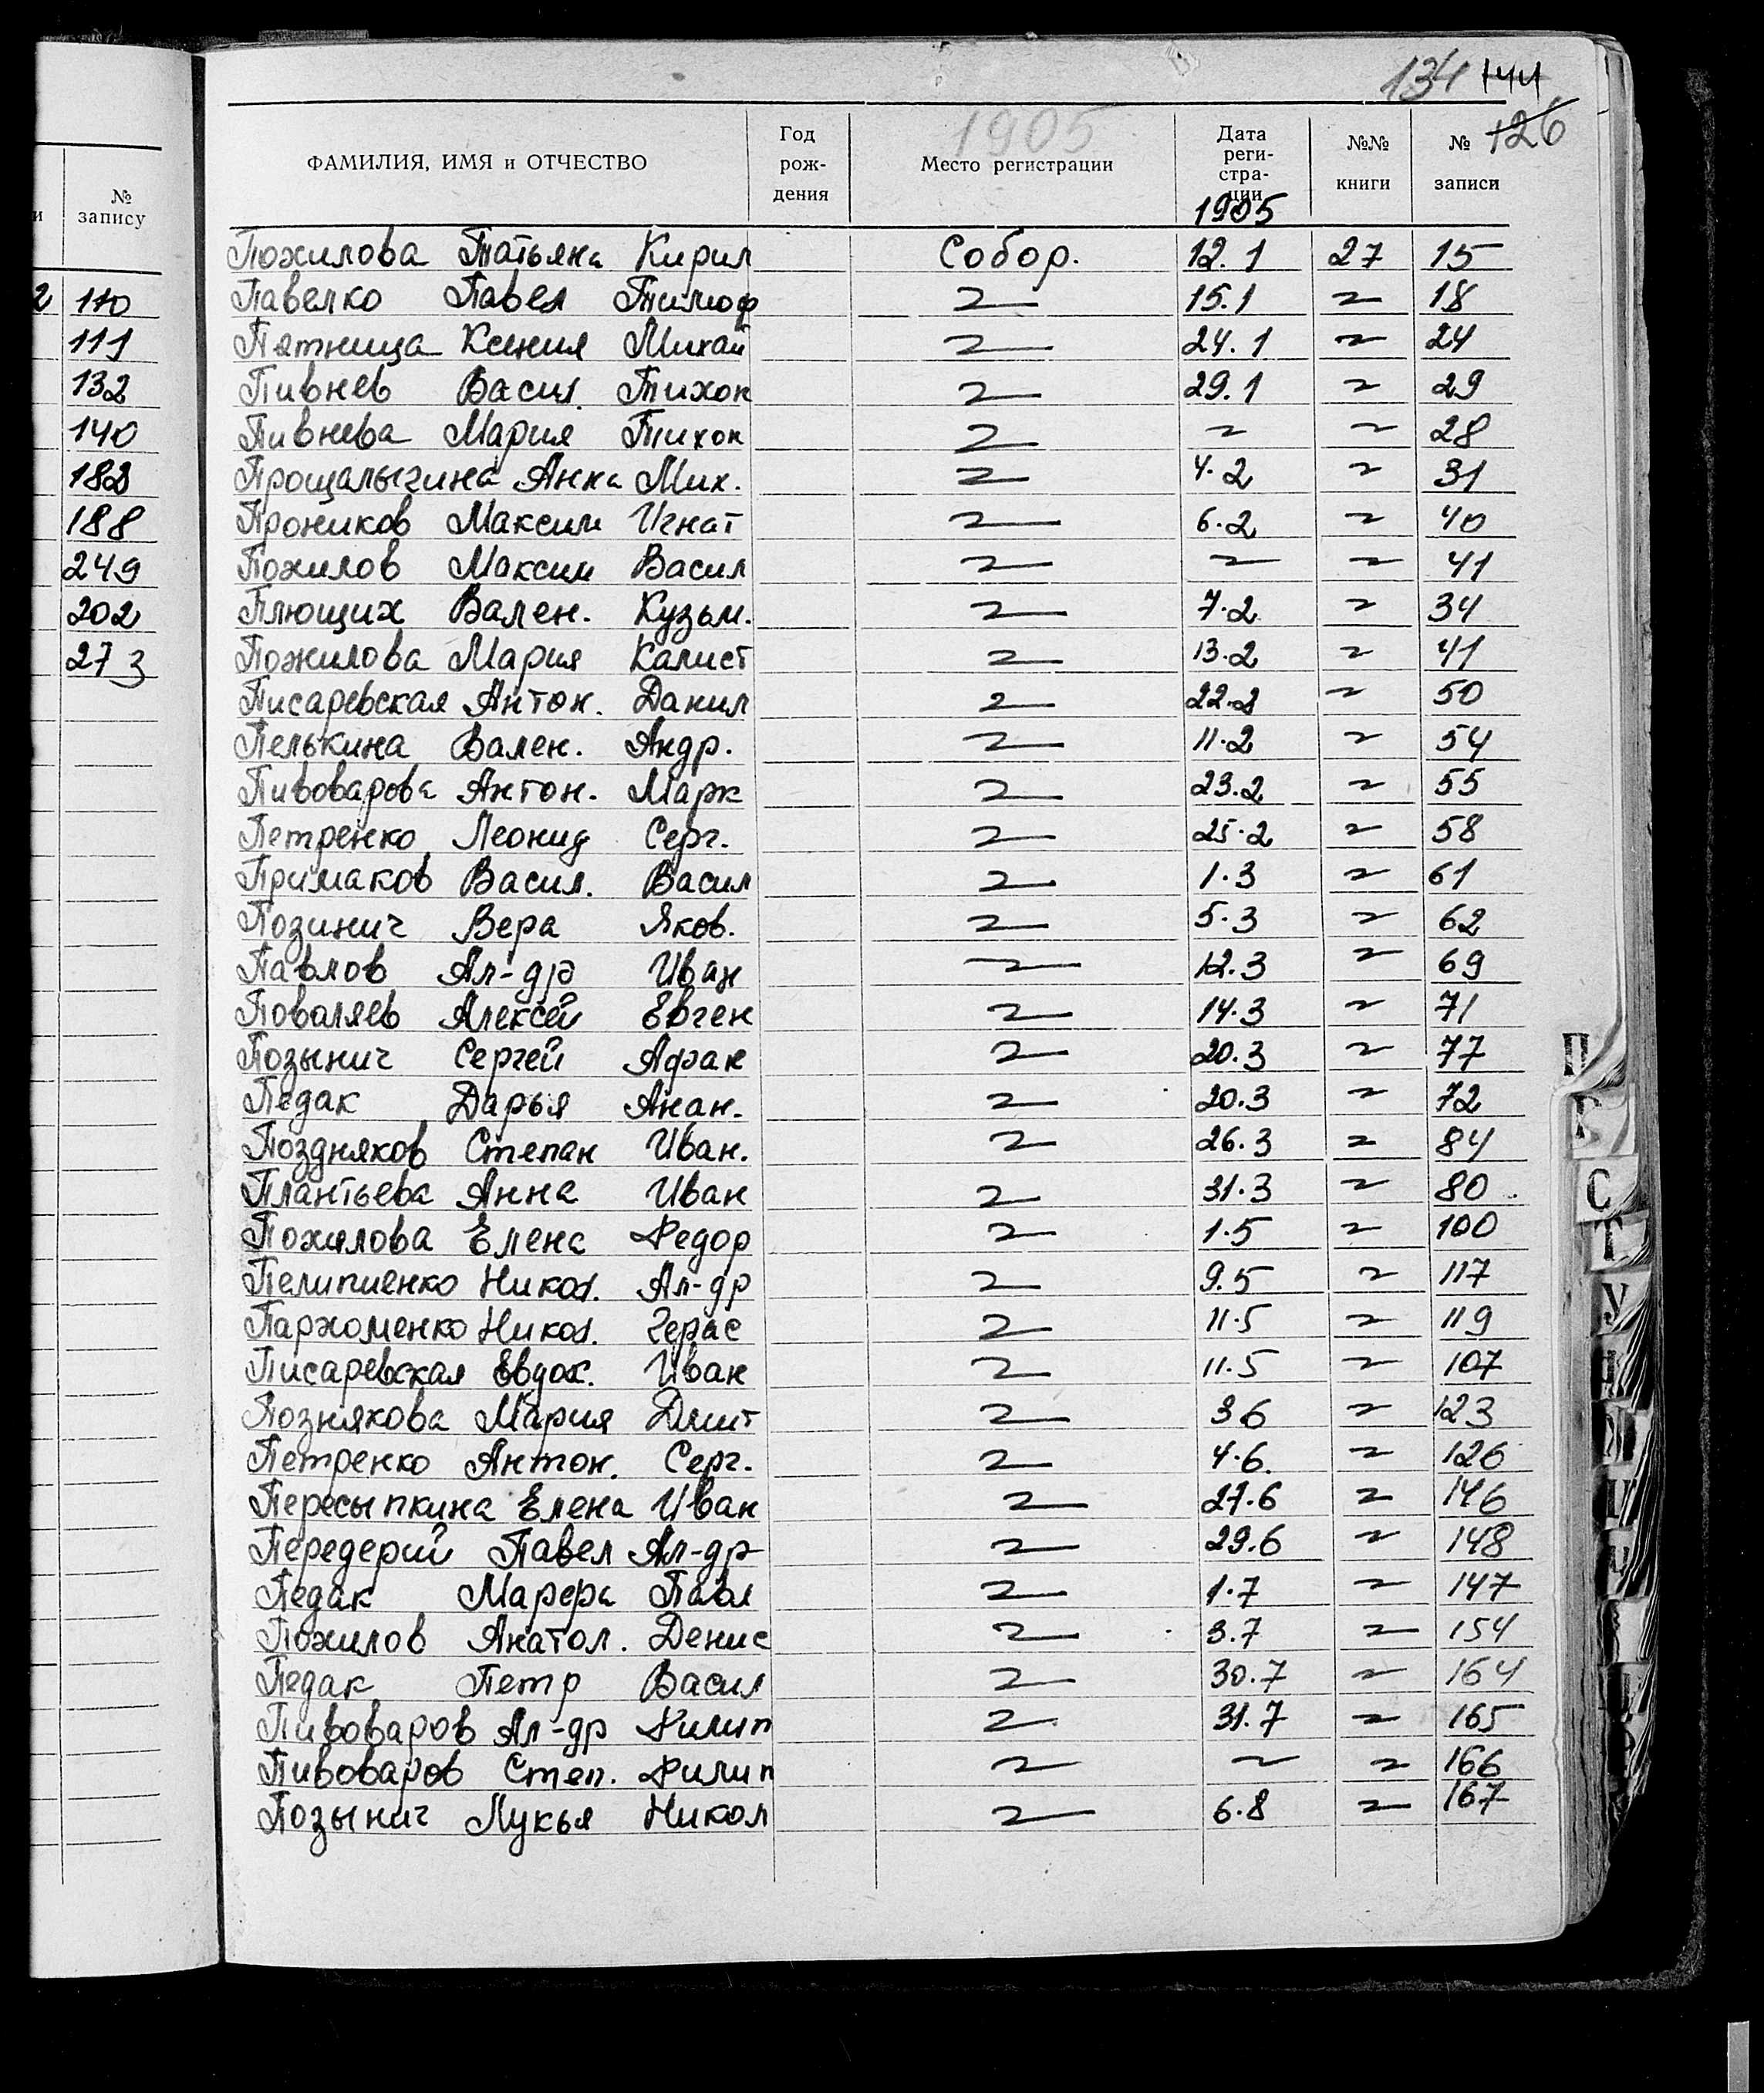 134 144
126
1905
ФАМИЛИЯ, ИМЯ и ОТЧЕСТВО Год рождения Место регистрации Дата реги-страции №№ книги № записи
1905
Пожилова Татьяна Кирил Собор. 12.1 27 15
Павелко Павел Тимоф 2 15.1 2 18
Пятница Ксения Михай 2 24.1 2 24
Пивнев Васил. Тихон 2 29.1 2 29
Пивнева Мария Тихон 2 2 2 28
Прощалыгина Анна Мих. 2 4.2 2 31
Проников Максим Игнат 2 6.2 2 40
Пожилов Максим Васил 2 2 2 41
Плющих Вален. Кузьм. 2 7.2 2 34
Пожилова Мария Калист 2 13.2 2 41
Писаревская Антон. Данил 2 22.2 2 50
Пелькина Вален. Андр. 2 11.2 2 54
Пивоварова Антон. Марк 2 23.2 2 55
Петренко Леонид Серг. 2 25.2 2 58
Примаков Васил. Васил 2 1.3 2 61
Позинич Вера Яков. 2 5.3 2 62
Павлов Ал-др Иван 2 12.3 2 69
Поваляев Алексей Евген 2 14.3 2 71
Позынич Сергей Афан 2 20.3 2 77
Педак Дарья Анан. 2 20.3 2 72
Поздняков Степан Иван. 2 26.3 2 84
Плантьева Анна Иван 2 31.3 2 80
Пожилова Елена Федор 2 1.5 2 100
Пелипиенко Никол. Ал-др 2 9.5 2 117
Пархоменко Никол. Герас 2 11.5 2 119
Писаревская Евдок. Иван 2 11.5 2 107
Познякова Мария Дмит 2 3.6 2 123
Петренко Антон. Серг. 2 4.6. 2 126
Пересыпкина Елена Иван 2 27.6 2 146
Передерий Павел Ал-др 2 29.6 2 148
Педак Марфа Павл 2 1.7 2 147
Пожилов Анатол. Денис 2 3.7 2 154
Педак Петр Васил 2 30.7 2 164
Пивоваров Ал-др Филип 2 31.7 2 165
Пивоваров Степ. Филип 2 2 2 166
Позынич Лукья Никол 2 6.8 2 167
№ запису
2 110
111
132
140
182
188
249
202
273
П
С
Т
У